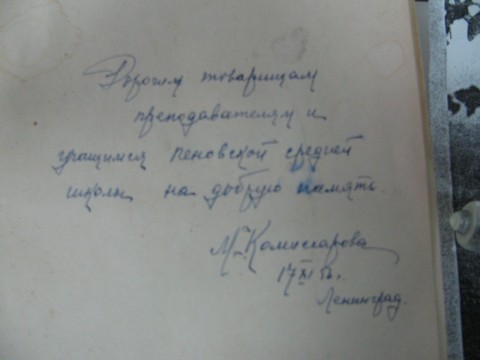 Дорогим товарищам
преподавателям и
учащимся пеновской средней
школы на добрую память.
М. Комиссарова
17 XI 56 г.
Ленинград.